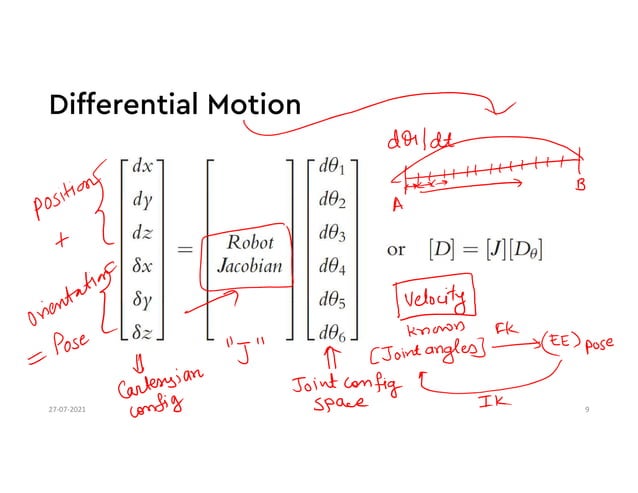 Differential Motion
dθ1/dt
A
B
position
+
orientation
= Pose
dx
dy
dz
δx
δy
δz
=
Robot
Jacobian
"J"
dθ1
dθ2
dθ3
dθ4
dθ5
dθ6
or [D] = [J][Dθ]
Velocity
known
[Joint angles]
FK
(EE) pose
IK
Cartensian
config
Joint config
space
27-07-2021
9